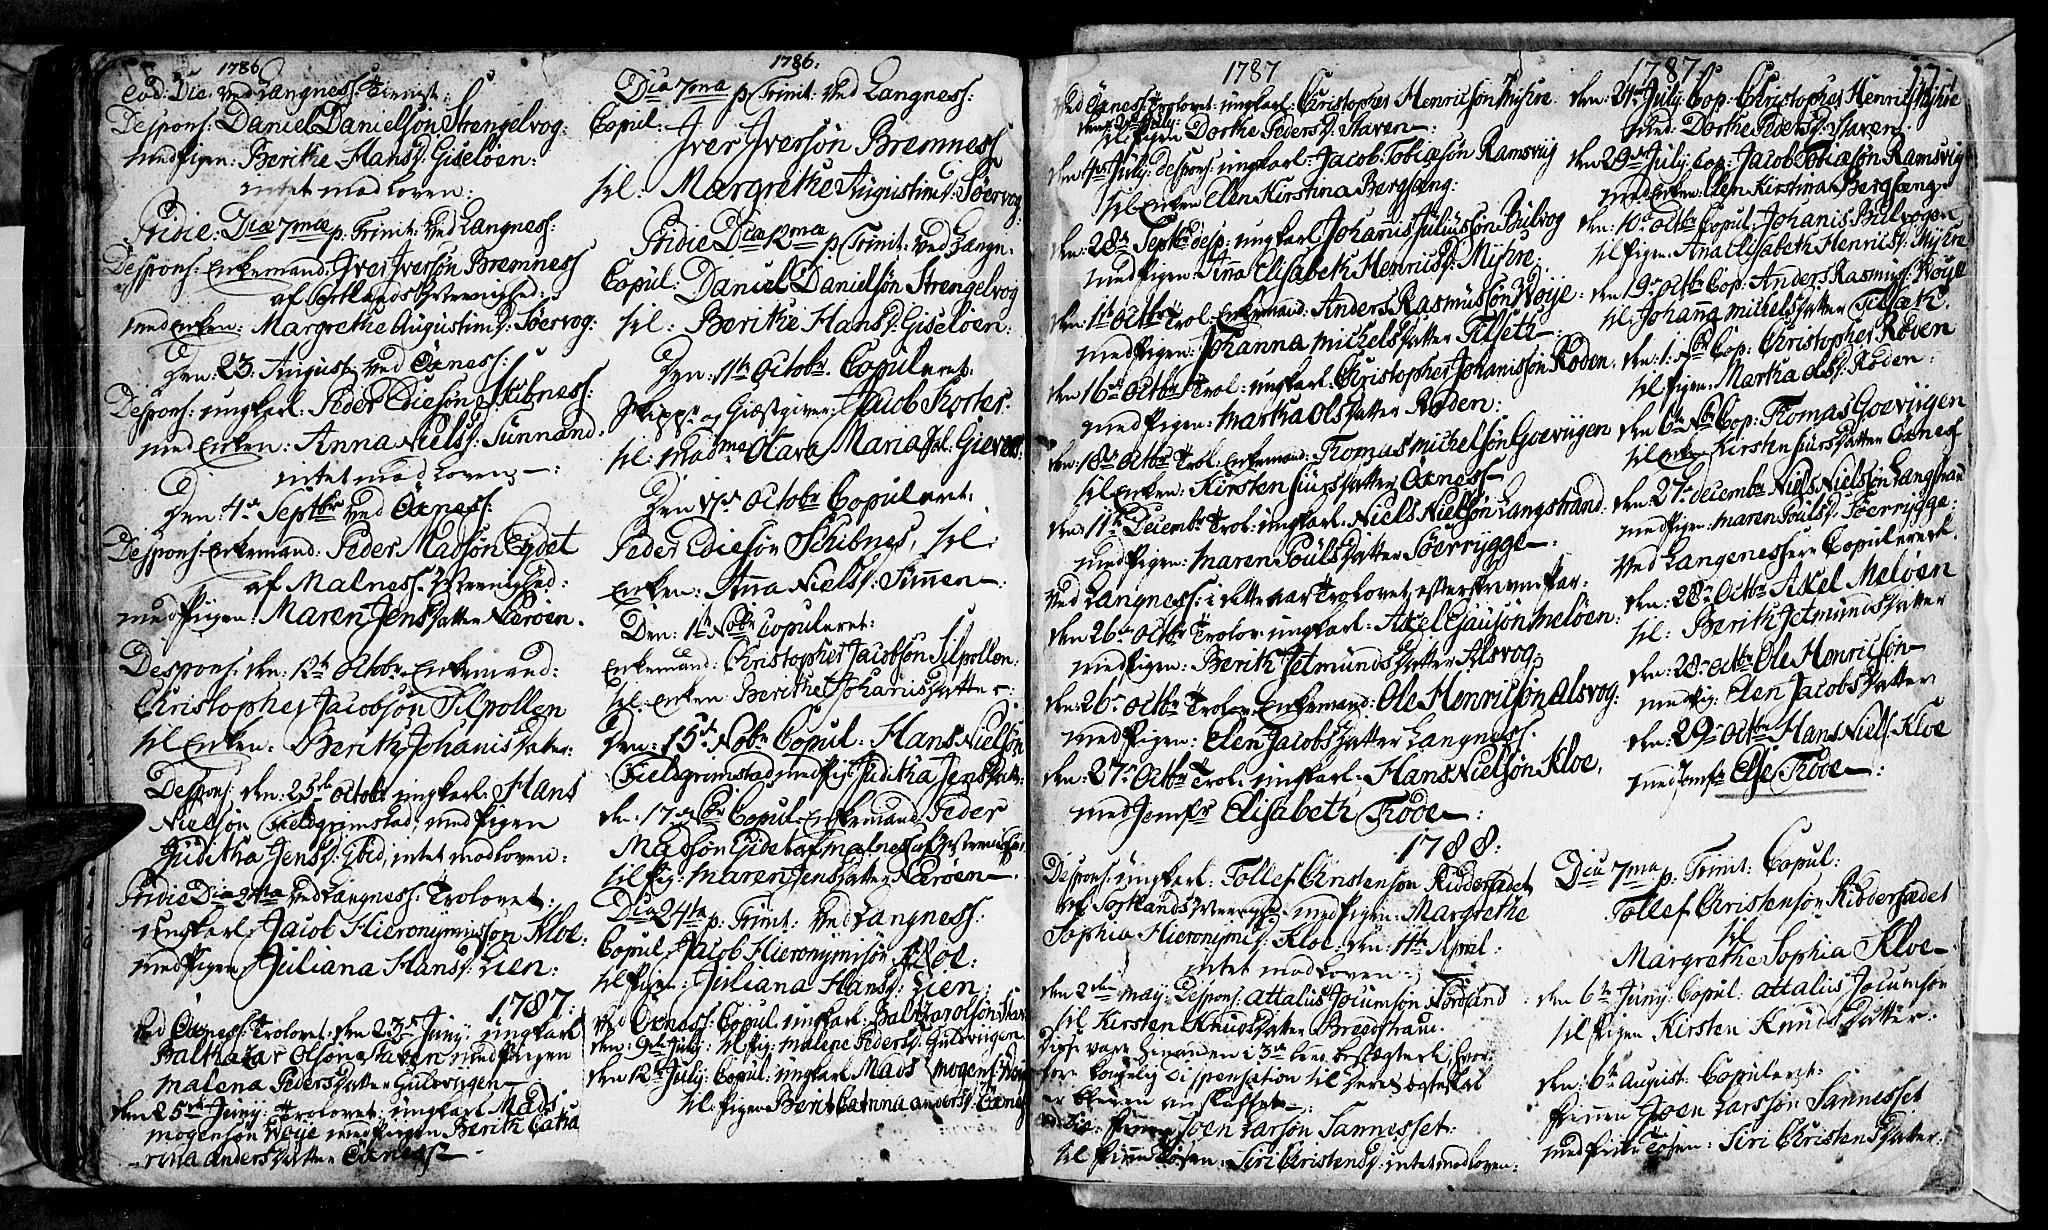 1786
Eod: Die ved Langness: tienest:
Despons: Daniel Danielsøn Strengelvog:
med Pigen: Berithe Hansd: Giseløen:
intet mod Loven:
Pridie: Dia 7mæ p: Trinit: ved Langness:
Despons: Enkemand: Iver Iversøn Bremness
af Sortlands
med Enken: Margrethe Augustind: Søervog:
Den: 23 August ved Öxness:
Despons: ungkarl: Peder Ediesøn Skibness:
med Enken: Anna Nielsd: Sunnand:
intet mod Loven:
Den: 4de Septbr ved Öxness:
Despons: Enkemand: Peder Madsøn Eydet
af Malness:
med Pigen: Maren Jensdatter Nærøen.
Despons: den: 12te Octobr Enkemand:
Christopher Jacobsøn Silpollen
til Enken: Berith Johanisdatter:
Despons: den: 25de Octobr ungkarl: Hans
Nielsøn Fieldgrimstad, med Pigen
Juditha Jensd: ibid, intet modLoven:
Pridie Dia 24ma ved Langness: Trolovet:
ungkarl: Jacob Hieronymusøn Kloe:
med Pigen Juliana Hansd: Lien:
1787:
ved Öxness: Trolovet: den 23de Juny: ungkarl
Balthazar Olsøn Staven med Pigen
Malena Pedersdatter Gulvigen
den 25de Juny: Trolovet: ungkarl Mads
Mogensøn Woje med Pigen Berith Catha
rina andersdatter Öxness
1786:
Dia 7ma p: Trinit: ved Langness:
Copul: Iver Iversøn Bremness
til: Margrethe Augustind: Søervog:
Pridie Dia 12ma p: Trinit: ved Langn:
Copul: Daniel Danielsøn Strengelvog
til: Berithe Hansd: Giseløen:
Den: 11te Octobr: Copuleret:
og Giæstgiver: Jacob Kortes:
til: Mad Maria
Den Octobr Copuleret:
Peder Ediesøn Schibnes, til:
Enken: Anna Nielsd:
Den: 1te Nobr Copuleret:
Enkemand: Christopher Jacobsøn Silpollen:
til: Enken Berithe Johanisdatter:
Den: 15de Nobr Copul: Hans Nielsøn
Fieldgrimstad med Pig: Juditha Jensdatter:
den: 17de Nobr Copul: Enkemand Peder
Madsøn Eidet af Malness
til Pig: Maren Jensdatter Nærøen.
Dia 24ta p: Trinit: ved Langness:
Copul: Jacob Hieronymisøn Kloe:
til Pigen: Juliana Hansd: Lien:
ved Öxness: Copul: ungkarl: Baltzar olsøn Stav
den: 9de July: til Pig: Malene Pedersd: Gulvigen
den 12te July: Copul: ungkarl Mads Mogens: Woje
til Pigen Berit Catrina andersd: Öxnes
1787
ved Öxness: Trolovet: ungkarl: Christopher Henricsøn Myhre
til Pigen Dorthe Pedersd: Staven:
den 4de July: despons: ungkarl: Jacob Tobiasøn Ramsvig
til Enken Elen Kirstina Bergsæng:
den: 28de Septbr desp: ungkarl Johanis Juliussøn Bulvog
med Pigen: Anna Elisabeth Henricsd: Myhre:
den: 1te Octbr Trol: Enkemand: Anders Rasmussøn Woije:
med Pigen: Johanna Michelsdatter Tilseth:
den 16de Octbr Trol: ungkarl: Christopher Johanissøn Røden,
med Pigen: Martha Olsdatter Røden:
den: 18de Octbr Trol: Enkemand: Thomas Michelsøn Goevigen
til Enken: Kirsten Siursdatter Öxness
den: 11te Decembr Trol: ungkarl: Niels Nielsøn Langstrand:
med Pigen: Maren Poulsdatter Søerrygge:
ved Langness: i dette aar Trolovet efterskrevne Par:
den 26de Octbr Trolov: ungkarl: Axel Meløen:
med Pigen: Berith Jetmundsdatter Alsvog:
den: 26de Octbr Trolov: Enkemand: Ole Henricsøn Alsvog:
med Pigen: Elen Jacobsdatter Langness.
den: 27de Octbr Trol: ungkarl: Hans Nielsøn Kloe,
med Jomfr Elisabeth Trode:
1788:
Despons: ungkarl: Tollef Christensøn Ridderfædet
af Sortlands med Pigen: Margrethe
Sophia Hieronymisd: Kloe: den: 11te April:
intet mod Loven:
den 2den May: Despons: Attalus Jocumsøn
til Kirsten Knudsdatter Bregdstrøm.
Disse vare hinanden i 3die Leed beslægtede, hvor
fore kongelig Dispensation til deres ægteskab
er bleven anskaffet.
Joen Larsøn Sannesset:
til Finne Tøsen: Siri Christensd: intet mod Loven:
1787.
den: 24de July: Cop: Christopher Henrics: Myhre
med: Dorthe Pedersd: Staven.
den 29de July: Cop: Jacob Tobiasøn Ramsvig
med Enken: Elen Kirstina Bergsæng.
den: 10de Octbr Copul: Johanis Bulvogen,
til Pigen: Ana Elisabeth Henricsd: Myhre
den 19de Octbr Cop: Anders Rasmus: Woije
til: Johanna Michelsdatter Tilsæth.
den: 1. Nbr Cop: Christopher Røden
til Pigen: Martha Olsd: Røden:
den 6te Nbr Cop: Thomas Goevigen
til Enken Kirsten Siursdatter Öxness
den: 27de decembr Niels Nielsøn Langstrand
med Pigen: Maren Poulsd: Søerrygge:
Ved Langeness ere Copulerede:
den: 28de Octbr Axel Meløen
til: Berith Jetmundsdatter
den: 28de octbr Ole Henricsøn
med Pig: Elen Jacobsdatter
den: 29de Octbr Hans Niels: Kloe
med Jomfr Else Trode:
Dia 7ma p: Trinit: Copul:
Tollef Christensøn Ridderfædet
til
Margrethe Sophia Kloe
den 6te Juny: Copul: Attalus Jocumsøn
til Pigen Kirsten Knudsdatter:
den: 6te August: Copuleret:
Finnen Joen Larssøn Sannesset
med Finne Tøsen: Siri Christensdatter: